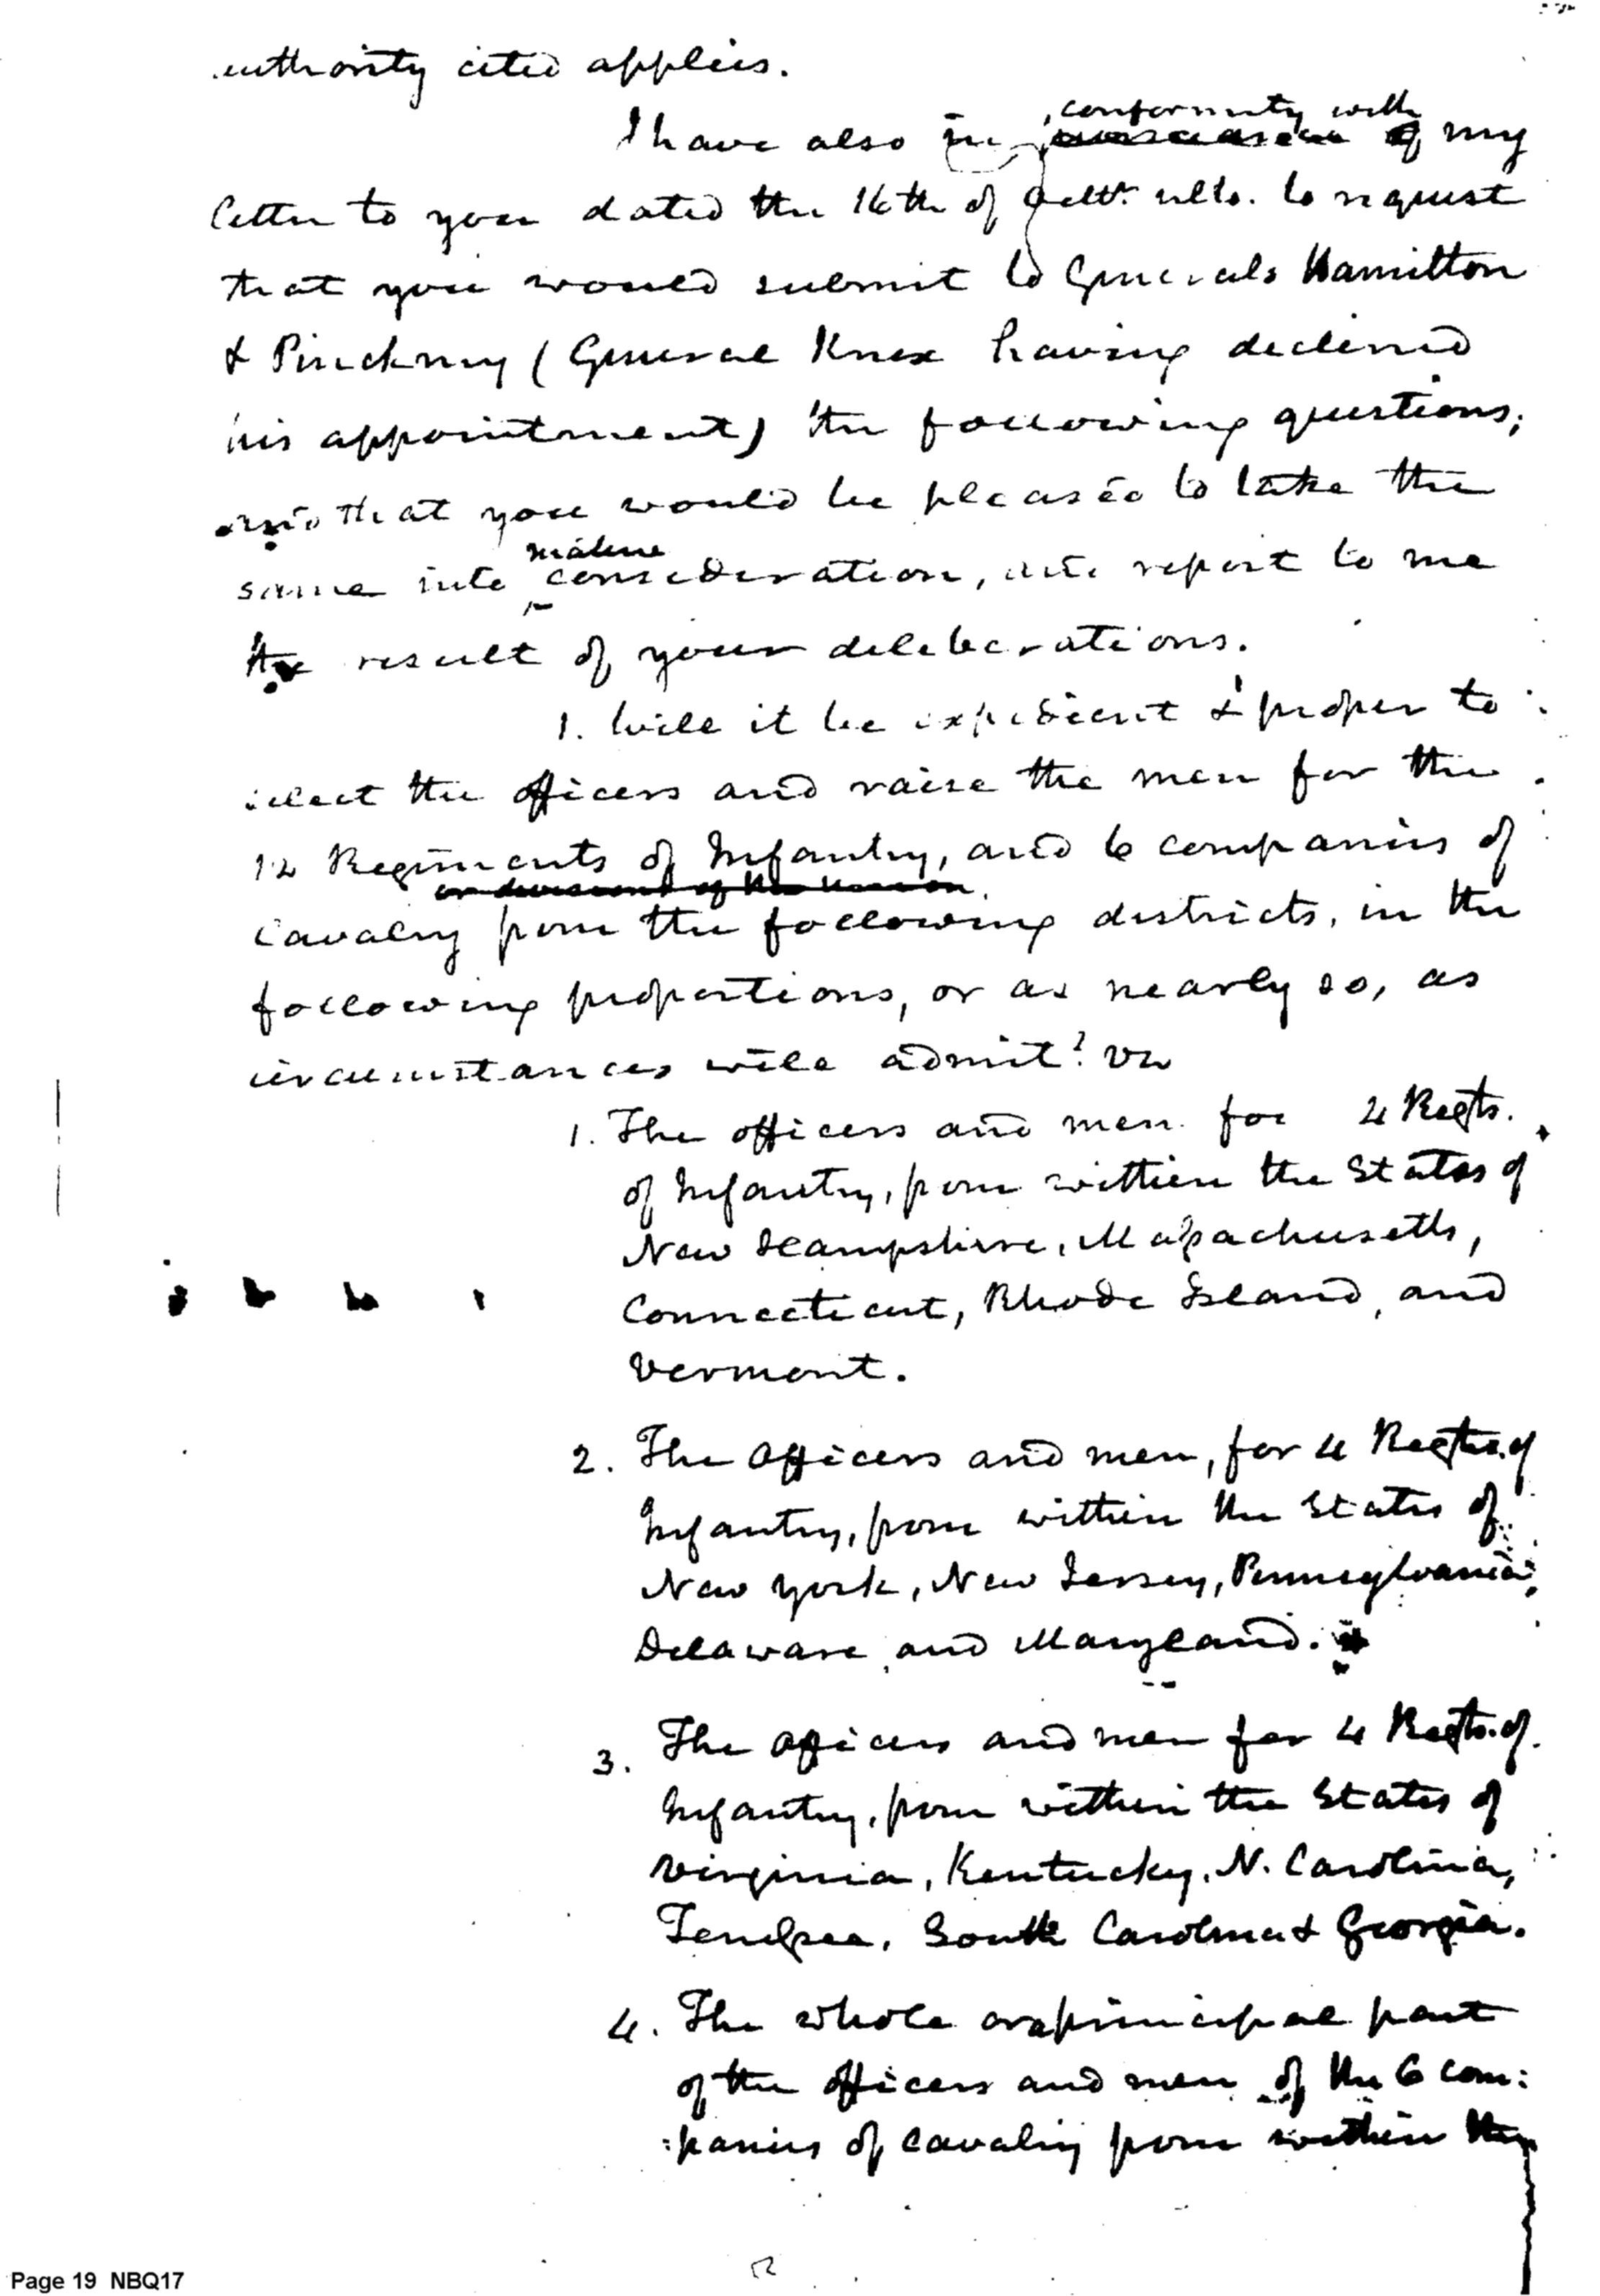 authority cited applies.
conformity with
I have also in pursuance of my
letter to you dated the 16th of Octr. ulto. to request
that you would submit to Generals Hamilton
& Pinckney (General Knox having declined
his appointment) the following questions;
and that you would be pleased to take the
mature
same into consideration, and report to me
the result of your deliberations.
1. Will it be expedient & proper to
select the officers and raise the men for the
12 Regiments of Infantry, and 6 companies of
or divisions of the Union
Cavalry from the following districts, in the
following proportions, or as nearly so, as
circumstances will admit? viz
1. The officers and men for 4 Regts.
of Infantry, from within the States of
New Hampshire, Massachusetts,
Connecticut, Rhode Island, and
Vermont.
2. The Officers and men, for 4 Regts. of
Infantry, from within the States of
New York, New Jersey, Pennsylvania,
Delaware and Maryland.
3. The officers and men for 4 Regts. of
Infantry, from within the States of
Virginia, Kentucky, N. Carolina,
Tennessee, South Carolina & Georgia.
4. The whole or a principal part
of the officers and men of the 6 com:
:panies of cavalry from within the
Page 19 NBQ17